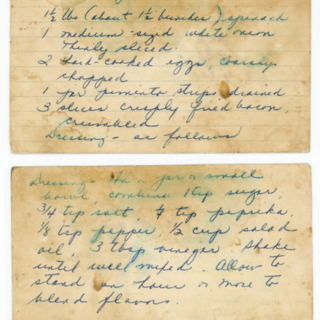 1½ lbs (about 1½ bunches) spinach
1 medium-sized white onion
thinly sliced.
2 hard-cooked eggs, coarsly
chopped
1 jar pimento strips drained
3 slices crisply fried bacon
crumbled
Dressing - as follows
Dressing - In a jar or small
bowl, combine 1 tsp sugar,
3/4 tsp salt, tsp paprika,
1/8 tsp pepper, 1/2 cup salad
oil, 3 tbsp vinegar. Shake
until well mixed. Allow to
stand an hour or more to
blend flavors.